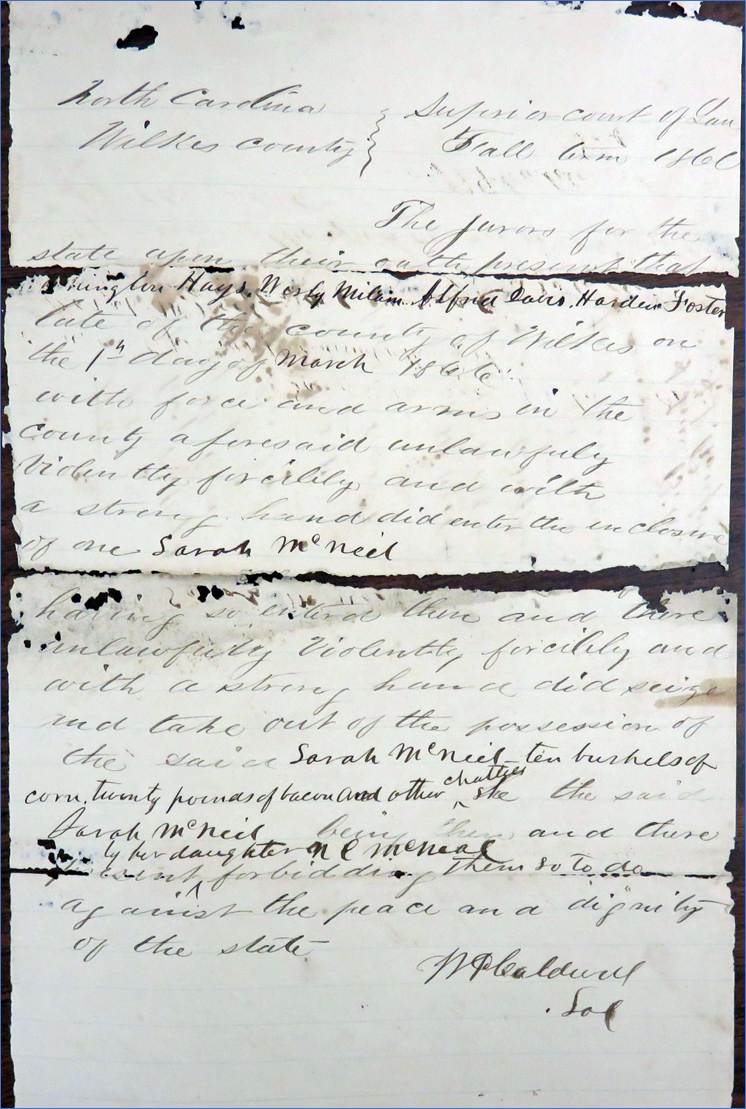 North Carolina } Superior court of Law
Wilkes county } Fall term 1866
The jurors for the
state upon their oath present that
Hays, Wesly Milam. Alfred Davis. Harden Foster
late of the county of Wilkes on
the 1st day of March 1866
with force and arms in the
county aforesaid unlawfuly
Violently forcibly and with
a strong hand did enter the enclosure
of one Sarah McNeil
having so entered then and there
unlawfully Violently forcibly and
with a strong hand did seize
and take out of the possession of
the said Sarah McNeil ten bushels of
corn. twenty pounds of bacon and other chattles she the said
Sarah McNeil being then and there
by her daughter N C McNeal
present forbidding them so to do
against the peace and dignity
of the state
W P Caldwell
Sol